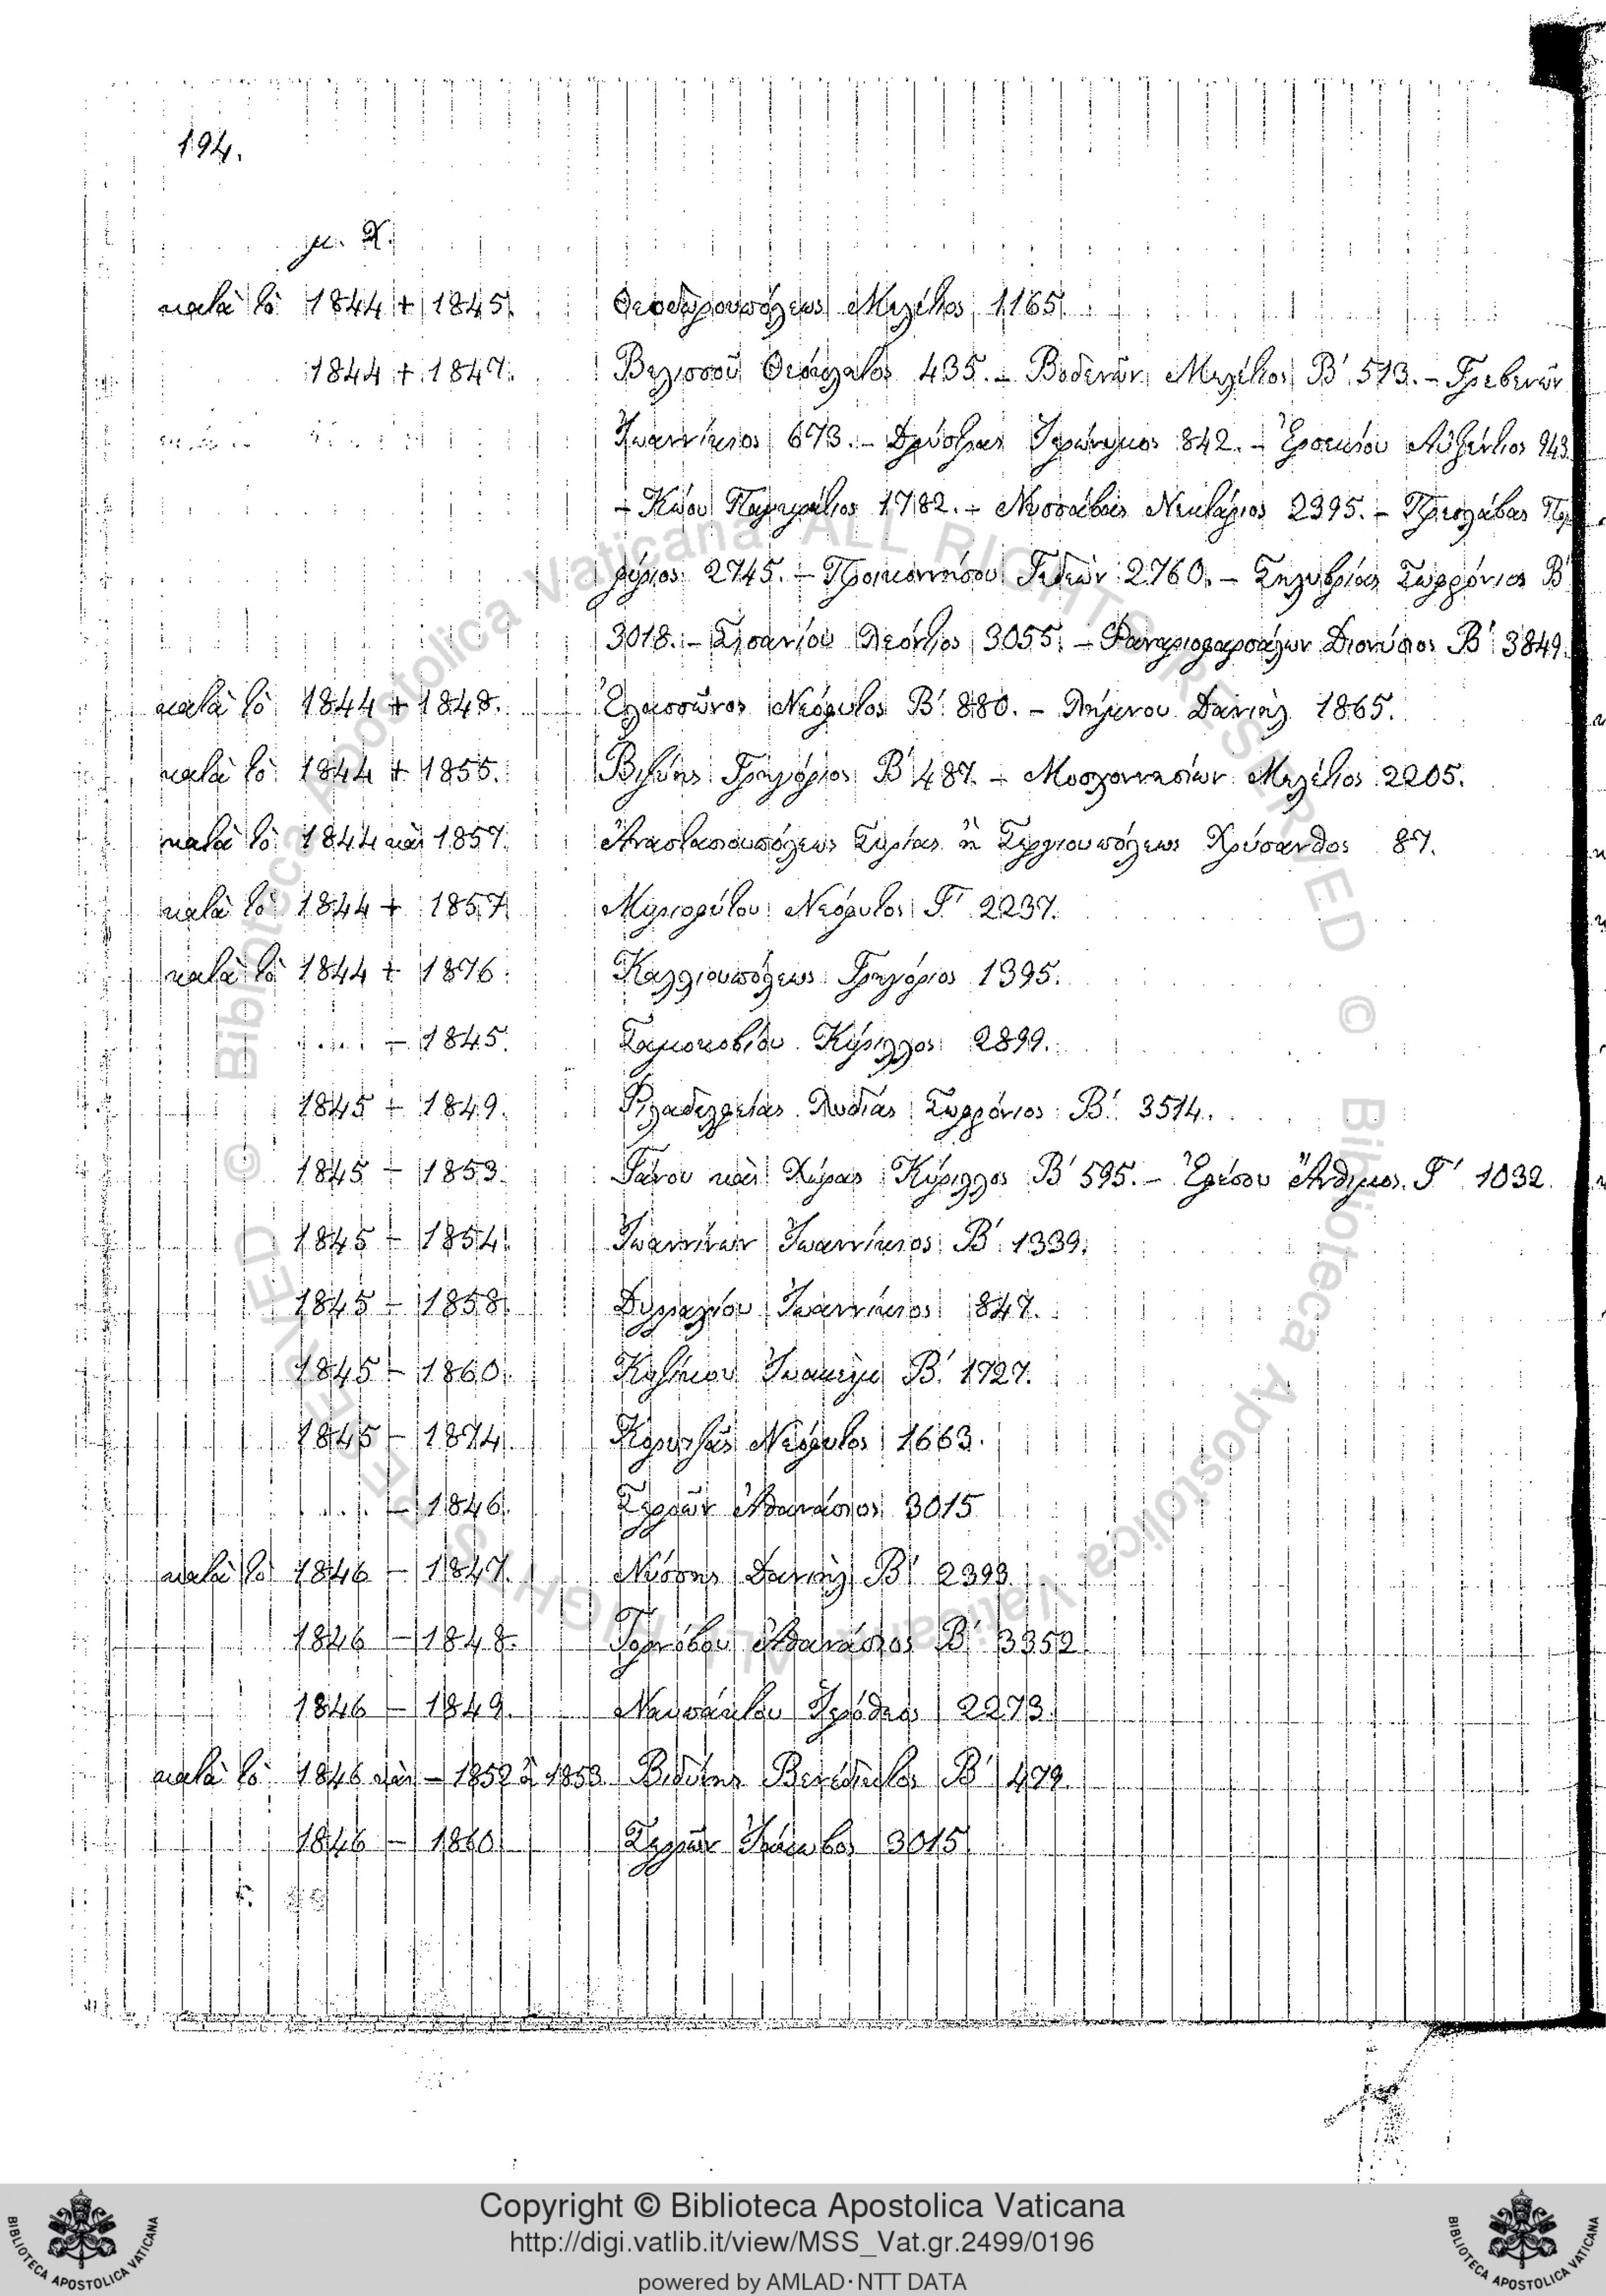 194.
μ. Χ.
κατὰ τὸ 1844 + 1845. Θεοδωρουπόλεως Μελέτιος 1165.
1844 + 1847. Βελισσοῦ Θεόκλητος 435. – Βοδενῶν Μελέτιος Β' 513. – Γρεβενῶν
Ἰωαννίκιος 673. – Δρύστρας Ἱερώνυμος 842. – Ἐρσεκίου Αὐξέντιος 943.
– Κώου Παγκράτιος 1782. – Νυσσάβας Νεκτάριος 2395. – Πρεσλάβας Πορ
φύριος 2745. – Προικοννήσου Γεδεὼν 2760. – Σηλυβρίας Σωφρόνιος Β'
3018. – Σισανίου Λεόντιος 3055. – Φαναριοφαρσάλων Διονύσιος Β' 3849.
κατὰ τὸ 1844 + 1848. Ἐλασσῶνος Νεόφυτος Β' 880. – Λήμνου Δανιὴλ 1865.
κατὰ τὸ 1844 + 1855. Βιζύης Γρηγόριος Β' 487. – Μοσχοννησίων Μελέτιος 2205.
κατὰ τὸ 1844 καὶ 1857. Ἀναστασιουπόλεως Συρίας ἢ Σεργιουπόλεως Χρύσανθος 87.
κατὰ τὸ 1844 + 1857. Μυριοφύτου Νεόφυτος Γ' 2237.
κατὰ τὸ 1844 + 1876. Καλλιουπόλεως Γρηγόριος 1395.
.... – 1845. Σαμοκοβίου Κύριλλος 2899.
1845 – 1849. Φιλαδελφείας Λυδίας Σωφρόνιος Β' 3514.
1845 – 1853. Γάνου καὶ Χώρας Κύριλλος Β' 595. – Ἐφέσου Ἄνθιμος Γ' 1032.
1845 – 1854. Ἰωαννίνων Ἰωαννίκιος Β' 1339.
1845 – 1858. Δυρραχίου Ἰωαννίκιος 847.
1845 – 1860. Κυζίκου Ἰωακεὶμ Β' 1727.
1845 – 1874. Κορυτζᾶς Νεόφυτος 1663.
.... – 1846. Σερρῶν Ἀθανάσιος 3015
κατὰ τὸ 1846 – 1847. Νύσσης Δανιὴλ Β' 2393.
1846 – 1848. Τορνόβου Ἀθανάσιος Β' 3352.
1846 – 1849. Ναυπάκτου Ἱερόθεος 2273.
κατὰ τὸ 1846 καὶ – 1852 ἢ 1853 Βιδύνης Βενέδικτος Β' 479.
1846 – 1860. Σερρῶν Ἰάκωβος 3015.
Copyright © Biblioteca Apostolica Vaticana
http://digi.vatlib.it/view/MSS_Vat.gr.2499/0196
powered by AMLAD·NTT DATA